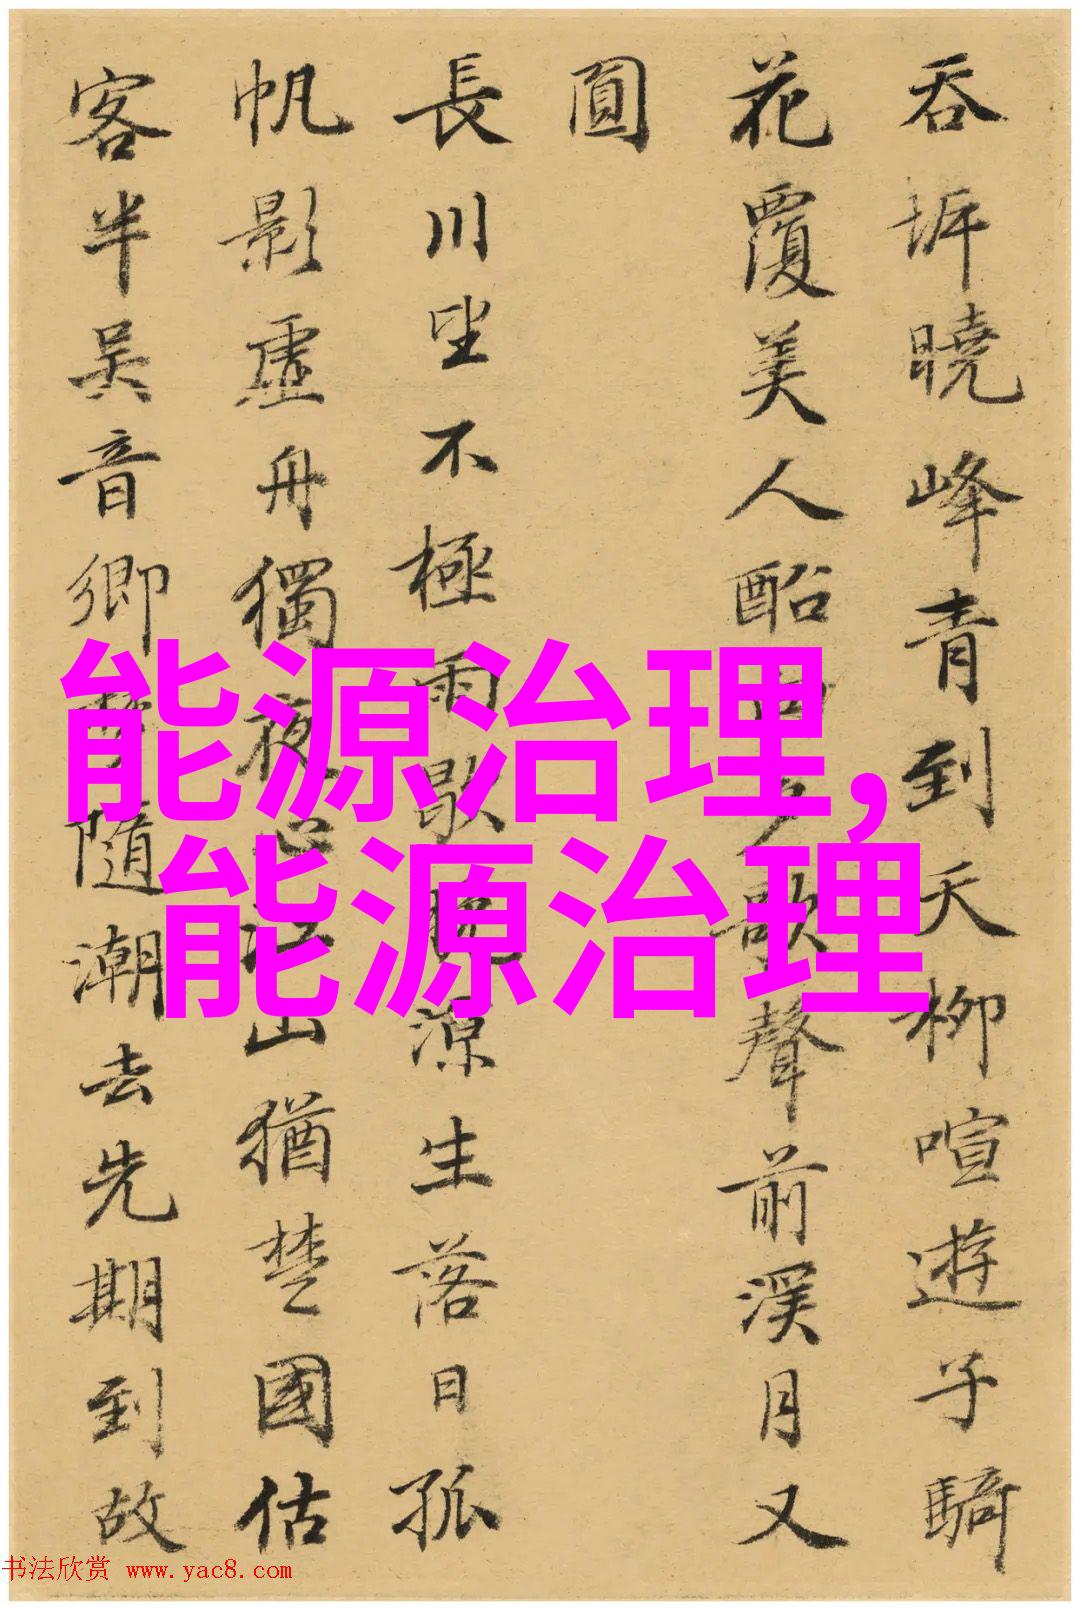 吞垿曉峰青到天柳喧遊子騎
花覆美人酩歌聲前溪月又
圓
長川坐不極雨歇晚涼生落日孤
帆影虛舟獨夜心江山猶楚國估
客半吳音鄉夢隨潮去先期到故
能源治理,
能源治理
书法欣赏 www.yac8.com